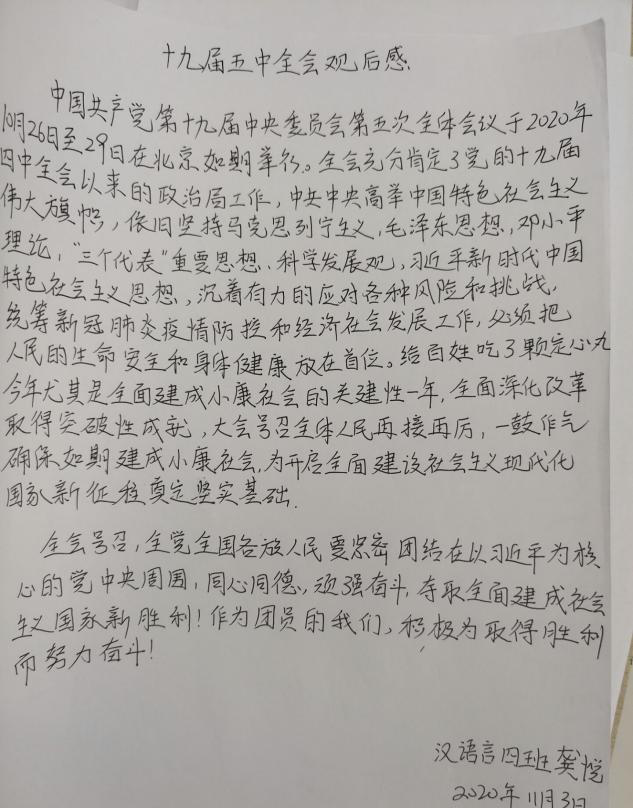 十九届五中全会观后感
中国共产党第十九届中央委员会第五次全体会议于2020年
10月26日至29日在北京如期举行。全会充分肯定了党的十九届
四中全会以来的政治局工作，中共中央高举中国特色社会主义
伟大旗帜，依旧坚持马克思列宁主义，毛泽东思想，邓小平
理论，“三个代表”重要思想、科学发展观，习近平新时代中国
特色社会主义思想，沉着有力的应对各种风险和挑战，
统筹新冠肺炎疫情防控和经济社会发展工作，必须把
人民的生命安全和身体健康放在首位。给百姓吃了颗定心丸
今年尤其是全面建成小康社会的关建性一年，全面深化改革
取得突破性成就，大会号召全体人民再接再厉，一鼓作气
确保如期建成小康社会，为开启全面建设社会主义现代化
国家新征程奠定坚实基础．
全会号召，全党全国各族人民要忠密团结在以习近平为核
心的党中央周围，同心同德，顽强奋斗，夺取全面建成社会
主义国家新胜利！作为团员的我们，积极为取得胜利
而努力奋斗！
汉语言四班龚悦
2020年11月3日